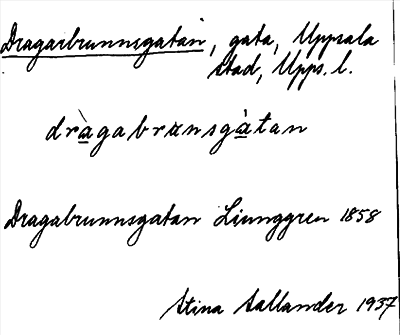 Dragarbrunnsgatan, gata, Uppsala
stad, Upps. l.
dràgabrunsgàtan
Dragabrunnsgatan Ljunggren 1858
Stina Sallander 1937